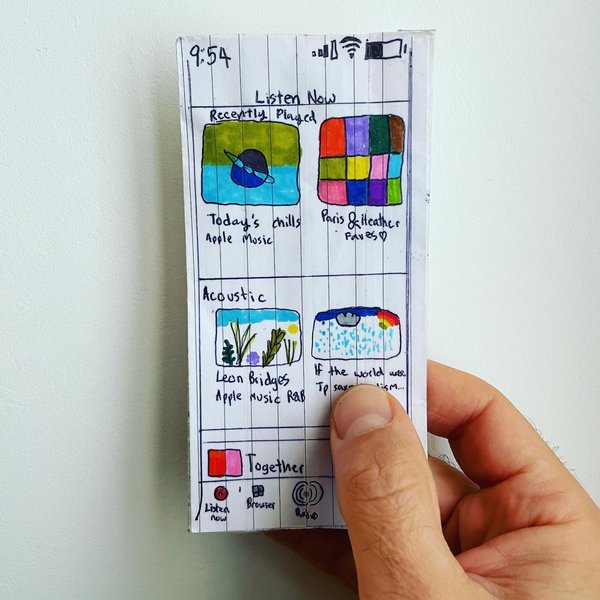 9:54
Listen Now
Recently Played
Today's chills
Apple Music
Paris & Heather
Favzs♡
Acoustic
Leon Bridges
Apple Music R&B
If the world was
Jp
Together
Listen now
Browser
Radio